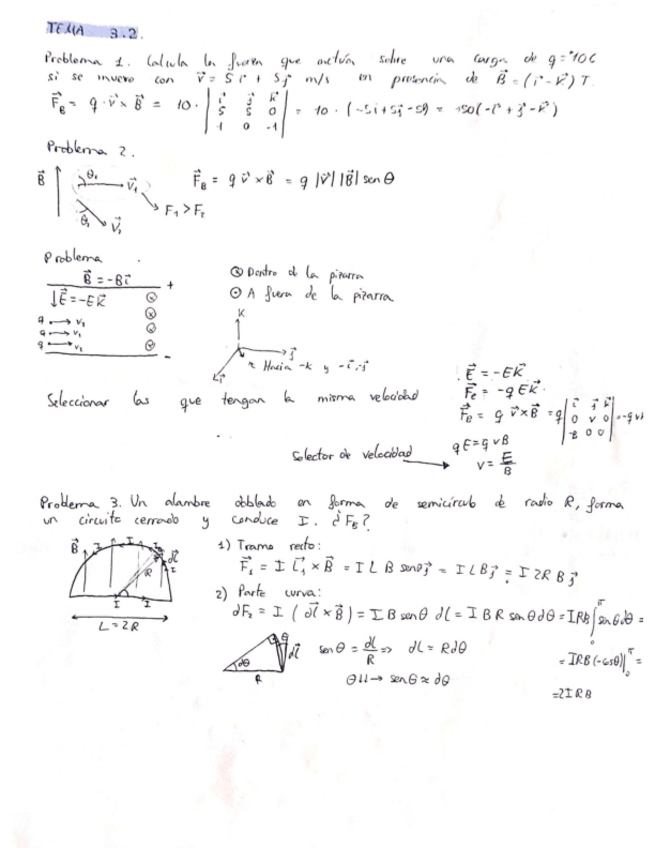 TEMA 3.2.
Problema 1. Calcula la fuerza que actúa sobre una carga de q = 10 C
si se mueve con v⃗ = 5 i⃗ + 5 j⃗ m/s en presencia de B⃗ = (i⃗ - k⃗) T.
F⃗_B = q · v⃗ × B⃗ = 10 · | i⃗ j⃗ k⃗ ; 5 5 0 ; 1 0 -1 | = 10 · (-5i + 5j - 5k) = 50 (-i⃗ + j⃗ - k⃗)
Problema 2.
B⃗ θ₁ v⃗₁ F⃗_B = q v⃗ × B⃗ = q |v⃗| |B⃗| sen θ
θ₂ v⃗₂ F₁ > F₂
Problema
B⃗ = -B i⃗ +
↓E⃗ = -E k⃗
q → v₁
q → v₁
q → v₁
-
⊗ Dentro de la pizarra
⊙ A fuera de la pizarra
K
j⃗
i⃗
Hacia -k y -i⃗, j⃗
Seleccionar las que tengan la misma velocidad
E⃗ = -E k⃗
F⃗e = -q E k⃗
F⃗_B = q v⃗ × B⃗ = q | i⃗ j⃗ k⃗ ; 0 v 0 ; -B 0 0 | = -q v
Selector de velocidad →
qE = q v B
v = E/B
Problema 3. Un alambre doblado en forma de semicírculo de radio R, forma
un circuito cerrado y conduce I. ¿F_B?
B⃗ I I dl⃗ R I I I
L = 2R
1) Tramo recto:
F⃗₁ = I L⃗₁ × B⃗ = I L B senθ j⃗ = I L B j⃗ = I 2R B j⃗
2) Parte curva:
dF₂ = I (dl⃗ × B⃗) = I B sen θ dl = I B R sen θ dθ = IRB ∫₀^π sen θ dθ =
= IRB (-cosθ)|₀^π =
= 2 I R B
dθ R θ dl⃗
sen θ = dl/R ⇒ dl = R dθ
θ↓↓ → sen θ ≈ dθ